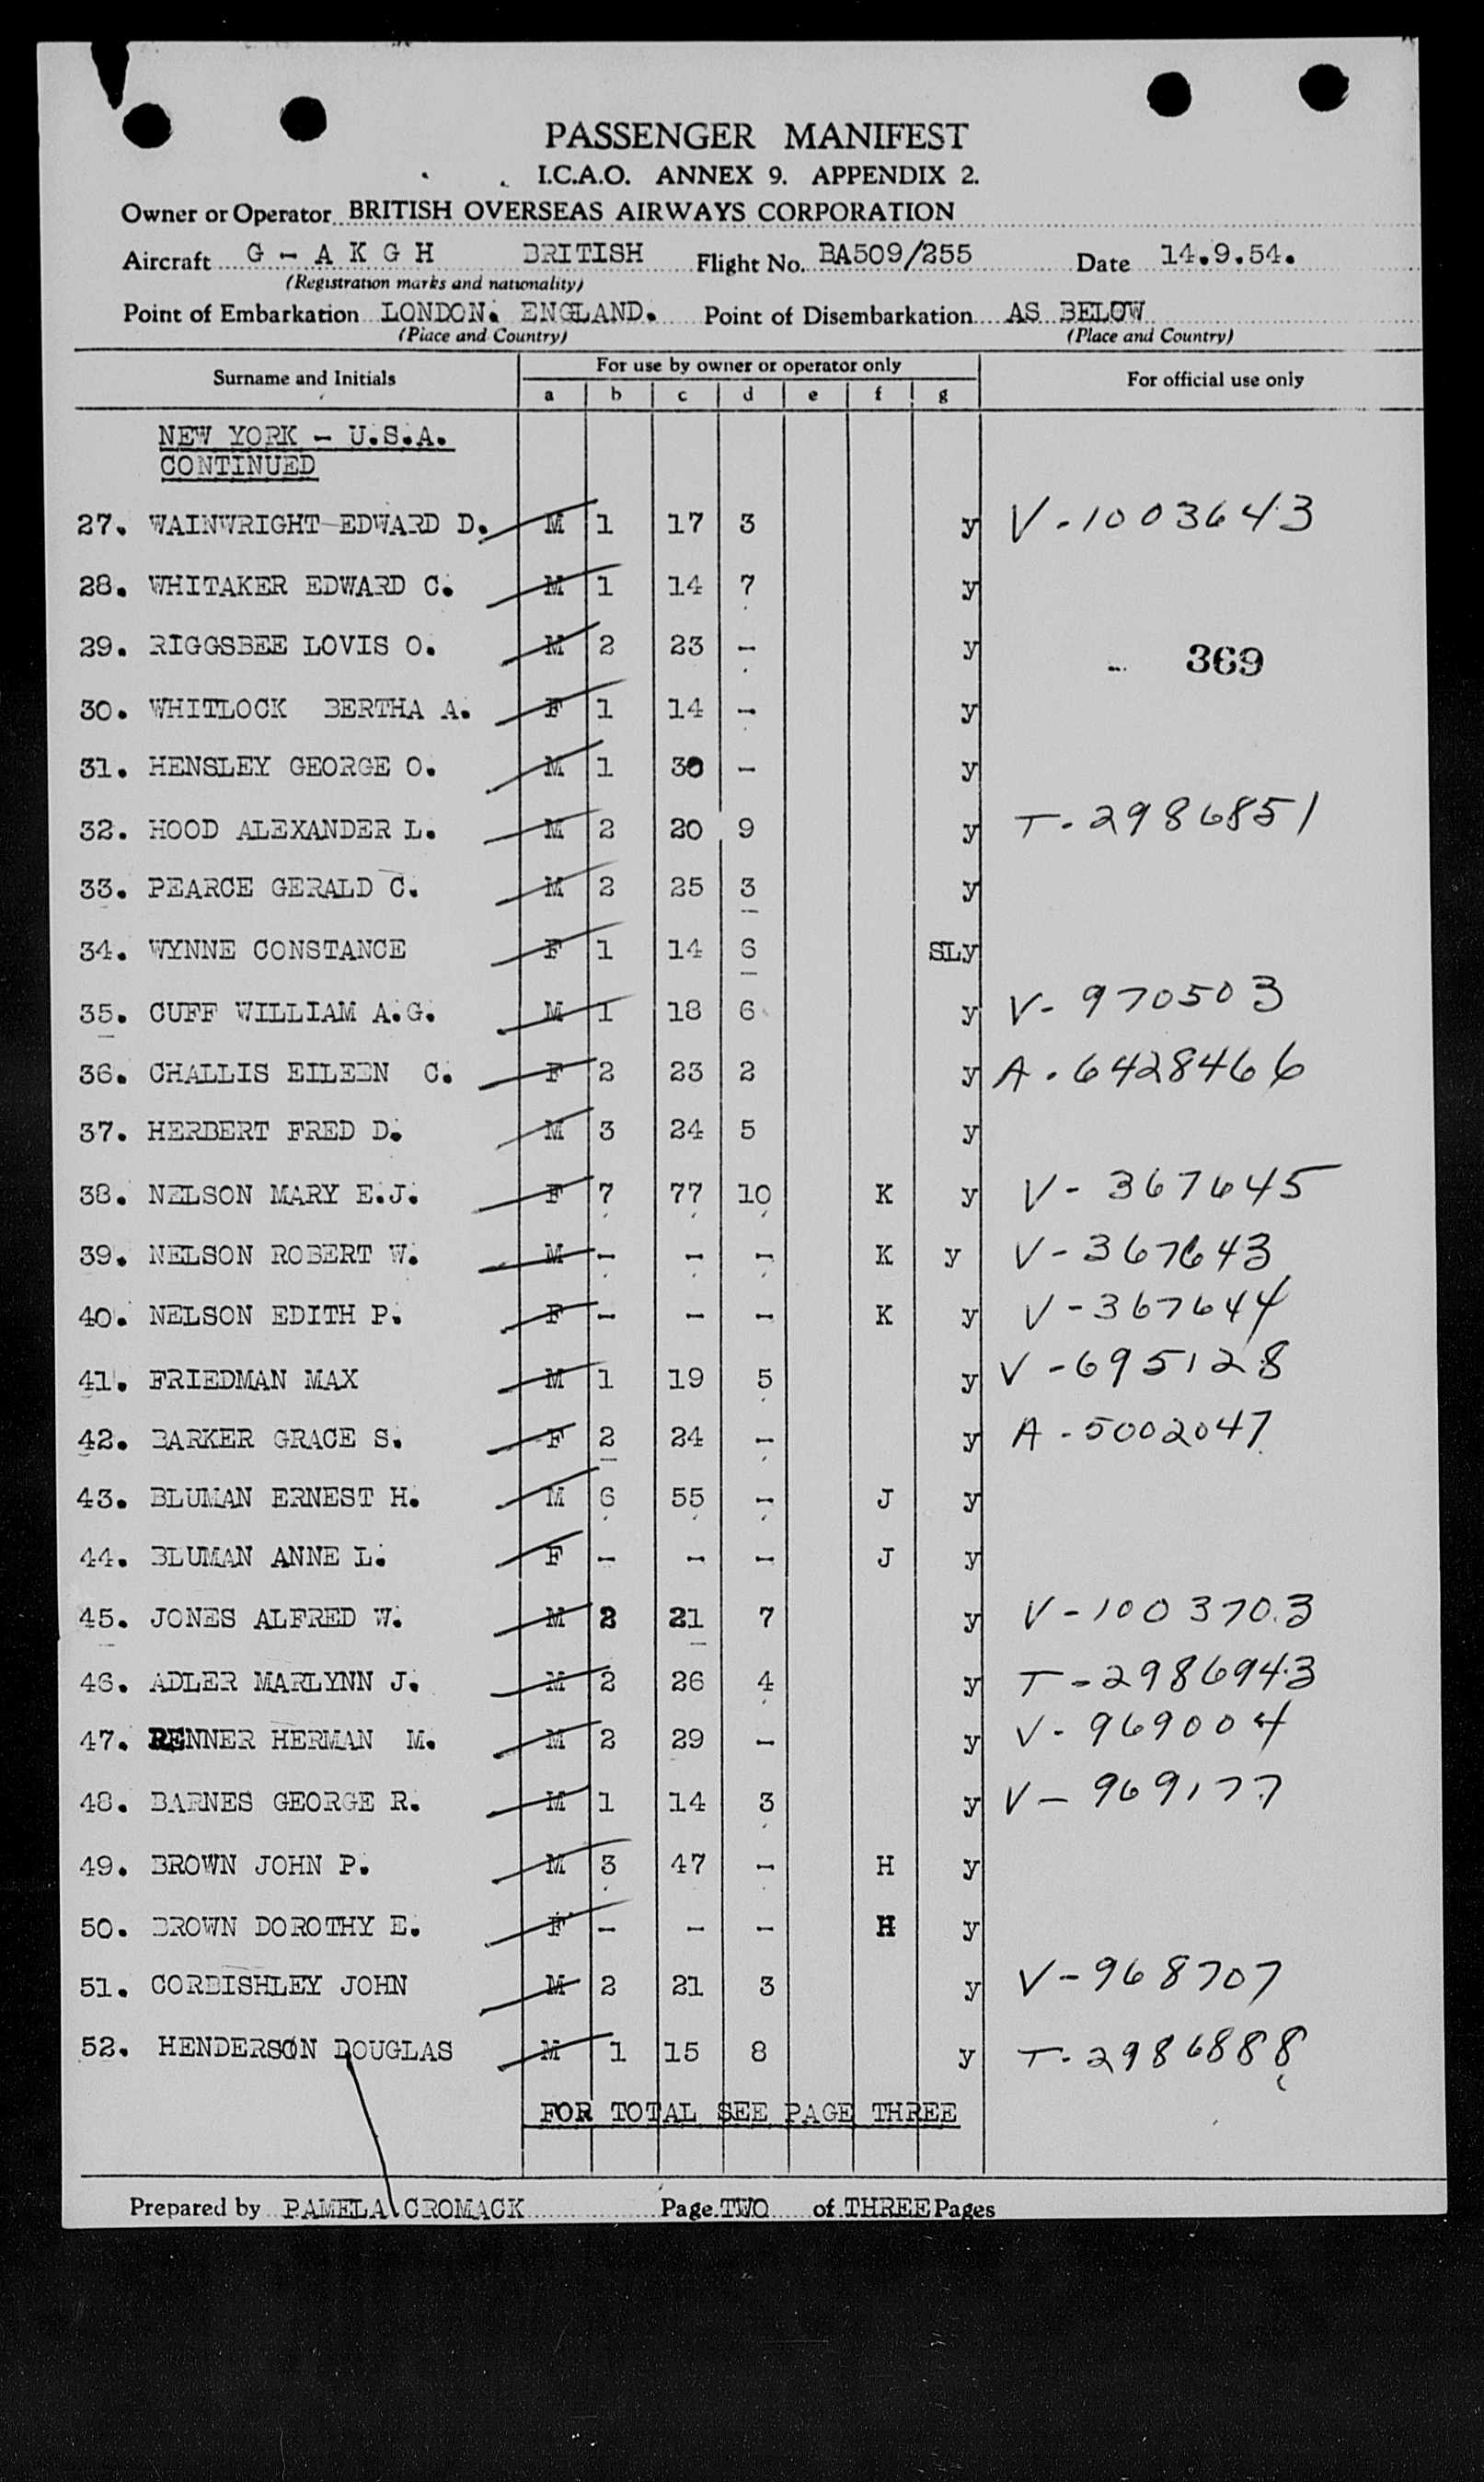 PASSENGER MANIFEST
I.C.A.O. ANNEX 9. APPENDIX 2.
Owner or Operator BRITISH OVERSEAS AIRWAYS CORPORATION
Aircraft G - A K G H BRITISH Flight No. BA509/255 Date 14.9.54.
(Registration marks and nationality)
Point of Embarkation LONDON. ENGLAND. Point of Disembarkation AS BELOW
(Place and Country) (Place and Country)
Surname and Initials For use by owner or operator only For official use only
a b c d e f g
NEW YORK - U.S.A.
CONTINUED
27. WAINWRIGHT EDWARD D. M 1 17 3 y V-1003643
28. WHITAKER EDWARD C. M 1 14 7 y
29. RIGGSBEE LOVIS O. M 2 23 - y 369
30. WHITLOCK BERTHA A. F 1 14 - y
31. HENSLEY GEORGE O. M 1 30 - y
32. HOOD ALEXANDER L. M 2 20 9 y T-2986851
33. PEARCE GERALD C. M 2 25 3 y
34. WYNNE CONSTANCE F 1 14 6 SLy
35. CUFF WILLIAM A.G. M 1 18 6 y V-970503
36. CHALLIS EILEEN C. F 2 23 2 y A-6428466
37. HERBERT FRED D. M 3 24 5 y
38. NELSON MARY E.J. F 7 77 10 K y V-367645
39. NELSON ROBERT W. M - - - K y V-367643
40. NELSON EDITH P. F - - - K y V-367644
41. FRIEDMAN MAX M 1 19 5 y V-695128
42. BARKER GRACE S. F 2 24 - y A-5002047
43. BLUMAN ERNEST H. M 6 55 - J y
44. BLUMAN ANNE L. F - - - J y
45. JONES ALFRED W. M 2 21 7 y V-1003703
46. ADLER MARLYNN J. M 2 26 4 y T-2986943
47. RENNER HERMAN M. M 2 29 - y V-969004
48. BARNES GEORGE R. M 1 14 3 y V-969177
49. BROWN JOHN P. M 3 47 - H y
50. BROWN DOROTHY E. F - - - H y
51. CORBISHLEY JOHN M 2 21 3 y V-968707
52. HENDERSON DOUGLAS M 1 15 8 y T-2986888
FOR TOTAL SEE PAGE THREE
Prepared by PAMELA CROMACK Page TWO of THREE Pages